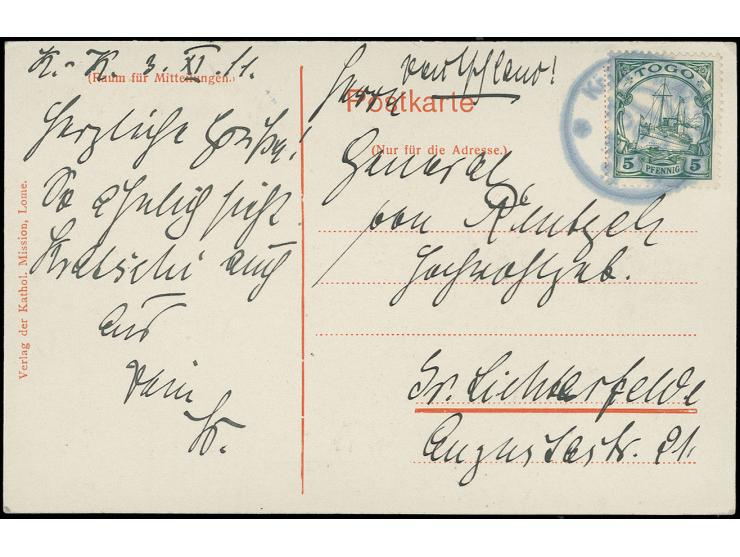 K.-K. 3. XI. 11.
(Raum für Mitteilungen.)
Herzliche Grüße!
So ähnlich sieht
Kratschi auch
aus
Dein
Verlag der Kathol. Mission, Lome.
Deutschland!
Postkarte
(Nur für die Adresse.)
General
von Rentzel
Hochwohlgeb.
Gr. Lichterfelde
Augustastr. 21.
TOGO
5 PFENNIG 5